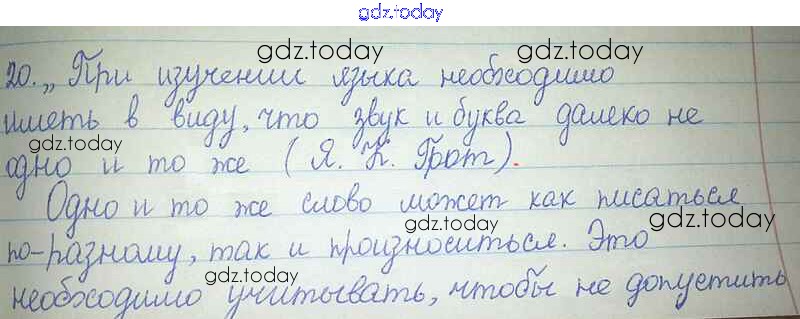 gdz.today
gdz.today gdz.today
20. „При изучении языка необходимо
gdz.today
иметь в виду, что звук и буква далеко не
gdz.today gdz.today
одно и то же (Я. К. Грот).
Одно и то же слово может как писаться
gdz.today gdz.today
по-разному, так и произноситься. Это
gdz.today
необходимо учитывать, чтобы не допустить
gdz.today gdz.today